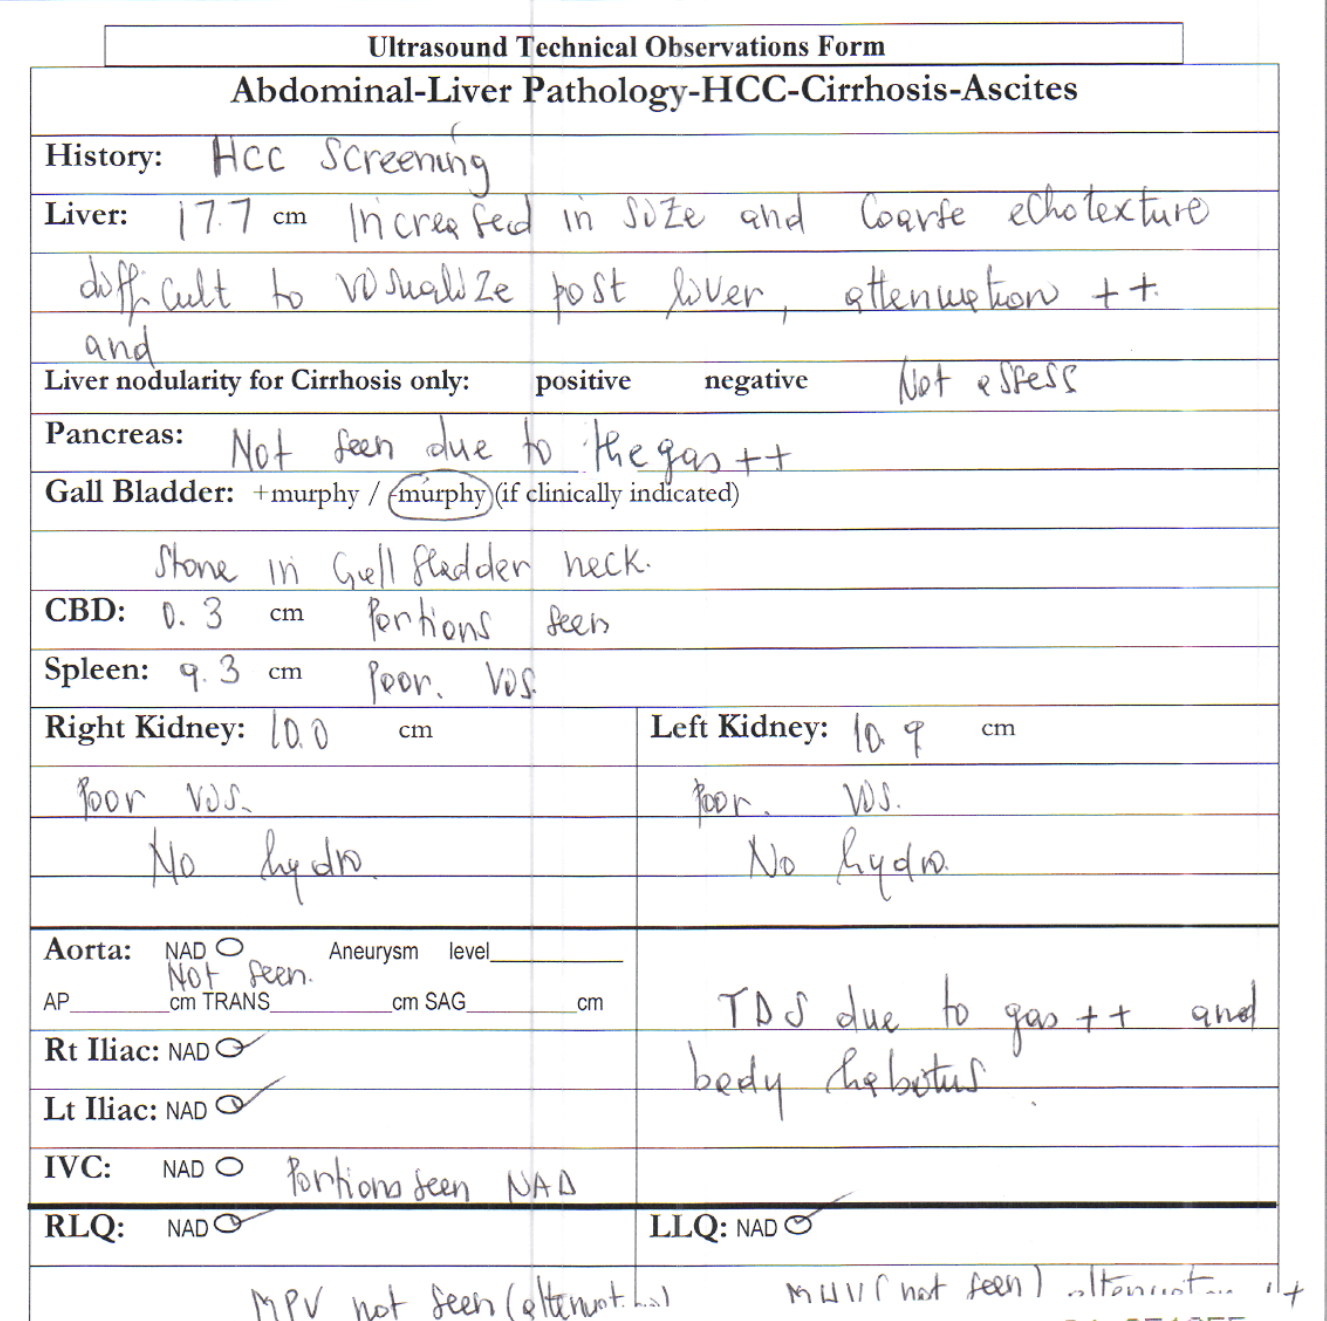 Ultrasound Technical Observations Form
Abdominal-Liver Pathology-HCC-Cirrhosis-Ascites
History: HCC Screening
Liver: 17.7 cm Increased in size and Coarse echotexture
difficult to visualize post liver, attenuation ++
and
Liver nodularity for Cirrhosis only: positive negative Not assess
Pancreas: Not seen due to the gas ++
Gall Bladder: +murphy / -murphy (if clinically indicated)
Stone in Gall Bladder neck.
CBD: 0.3 cm Portions seen
Spleen: 9.3 cm Poor. Vis.
Right Kidney: 10.0 cm Left Kidney: 10.9 cm
Poor Vis. Poor. Vis.
No hydro. No hydro.
Aorta: NAD Aneurysm level
Not seen.
AP cm TRANS cm SAG cm TDS due to gas ++ and
Rt Iliac: NAD body habitus
Lt Iliac: NAD
IVC: NAD Portions seen NAD
RLQ: NAD LLQ: NAD
MPV not seen (attenuation) (not seen) attenuation ++